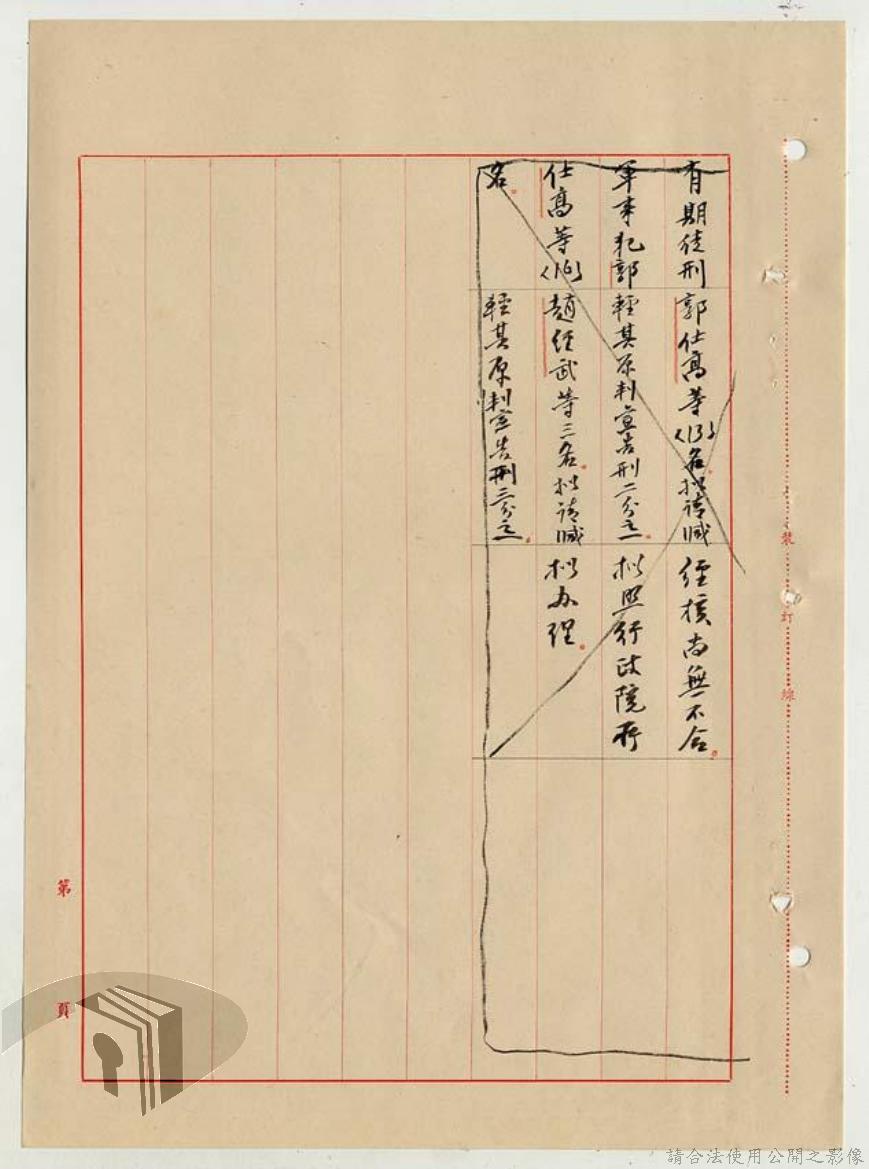 有期徒刑
軍事犯郭
仕高等(16)
名。
郭仕高等(13)名擬請減
輕其原判宣告刑二分之一。
趙經武等三名。擬請減
輕其原判宣告刑三分之一。
經核尚無不合。
擬照行政院所
擬办理。
裝
訂
線
第
頁
請合法使用公開之影像